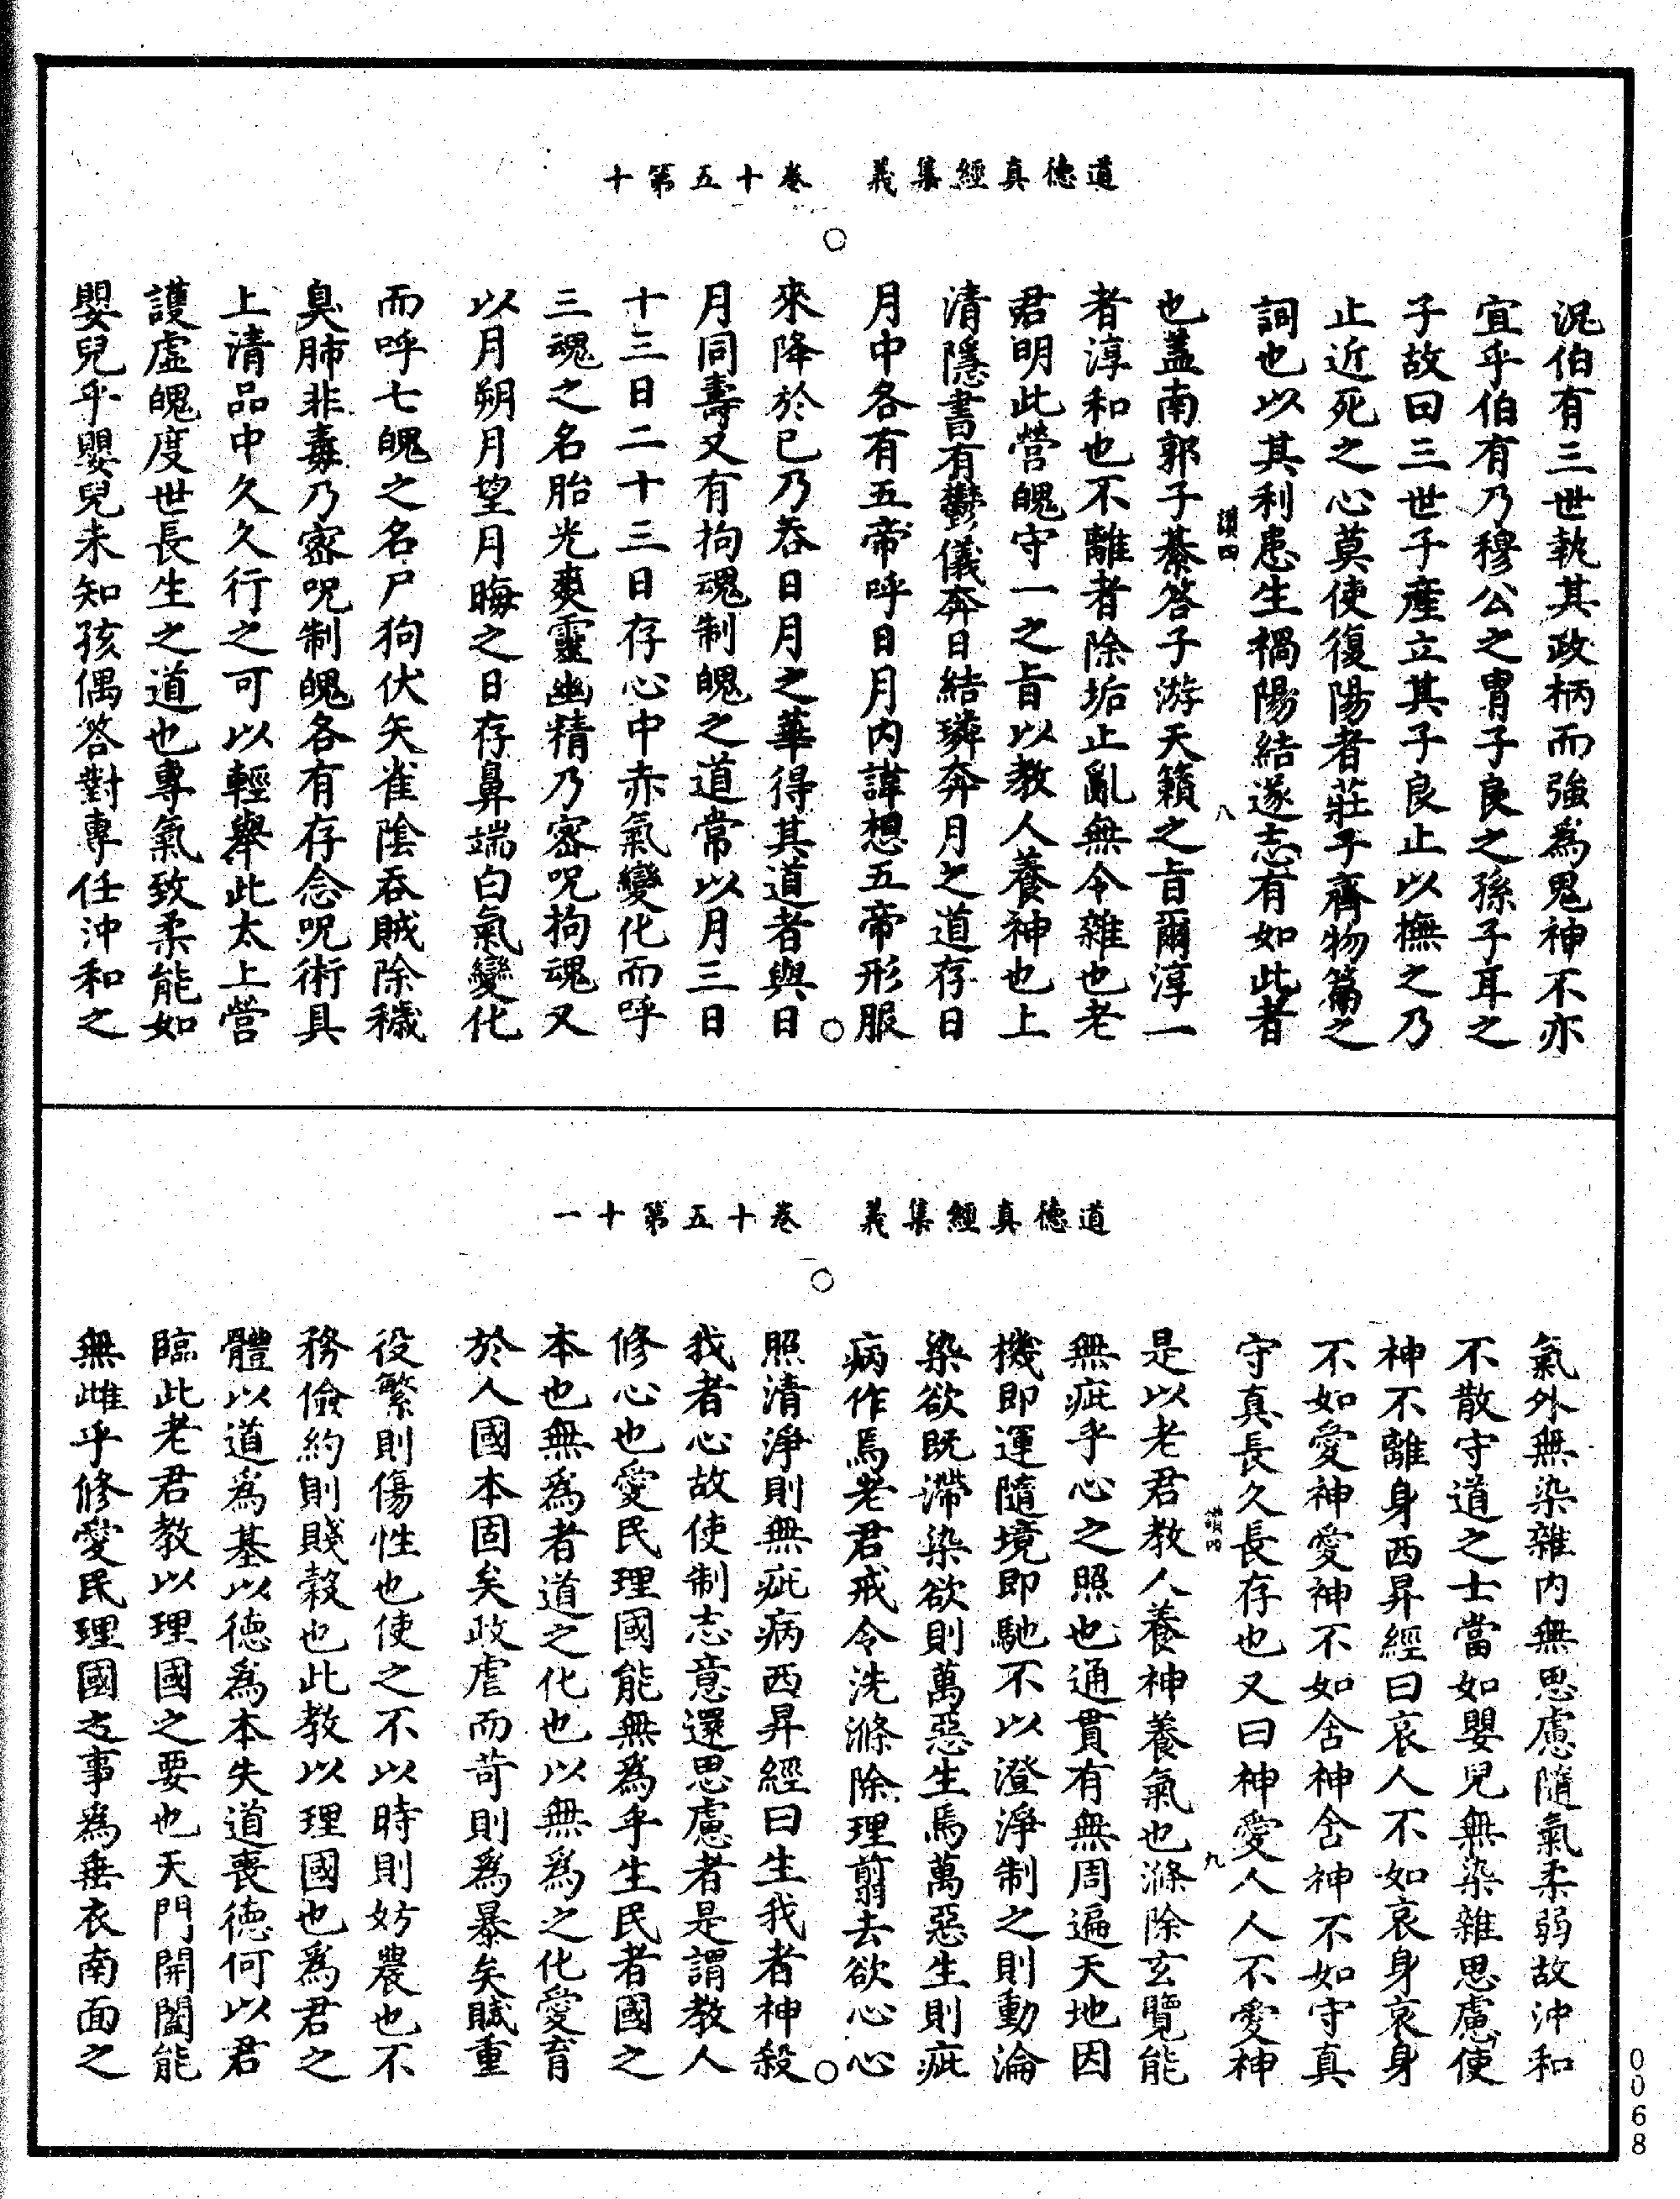 道德真經集義　卷十五第十
況伯有三世執其政柄而強為鬼神不亦
宜乎伯有乃穆公之胄子良之孫子耳之
子故曰三世子產立其子良止以撫之乃
止近死之心莫使復陽者莊子齊物篇之
詞也以其利患生禍陽結遂志有如此者
讃四　八
也蓋南郭子綦答子游天籟之旨爾淳一
者淳和也不離者除垢止亂無令雜也老
君明此營魄守一之旨以教人養神也上
清隱書有鬱儀奔日結璘奔月之道存日
月中各有五帝呼日月內諱想五帝形服
來降於已乃吞日月之華得其道者與日
月同壽又有拘魂制魄之道常以月三日
十三日二十三日存心中赤氣變化而呼
三魂之名胎光爽靈幽精乃密呪拘魂又
以月朔月望月晦之日存鼻端白氣變化
而呼七魄之名尸狗伏矢雀陰吞賊除穢
臭肺非毒乃密呪制魄各有存念呪術具
上清品中久久行之可以輕舉此太上營
護虛魄度世長生之道也專氣致柔能如
嬰兒乎嬰兒未知孩偶答對專任沖和之
道德真經集義　卷十五第十一
氣外無染雜內無思慮隨氣柔弱故沖和
不散守道之士當如嬰兒無染雜思慮使
神不離身西昇經曰哀人不如哀身哀身
不如愛神愛神不如舍神舍神不如守真
守真長久長存也又曰神愛人人不愛神
讃四　九
是以老君教人養神養氣也滌除玄覽能
無疵乎心之照也通貫有無周遍天地因
機即運隨境即馳不以澄淨制之則動淪
染欲既滯染欲則萬惡生焉萬惡生則疵
病作焉老君戒令洗滌除理翦去欲心心
照清淨則無疵病西昇經曰生我者神殺
我者心故使制志意還思慮者是謂教人
修心也愛民理國能無為乎生民者國之
本也無為者道之化也以無為之化愛育
於人國本固矣政虐而苛則為暴矣賦重
役繁則傷性也使之不以時則妨農也不
務儉約則賤穀也此教以理國也為君之
體以道為基以德為本失道喪德何以君
臨此老君教以理國之要也天門開闔能
無雌乎修愛民理國之事為垂衣南面之
0068